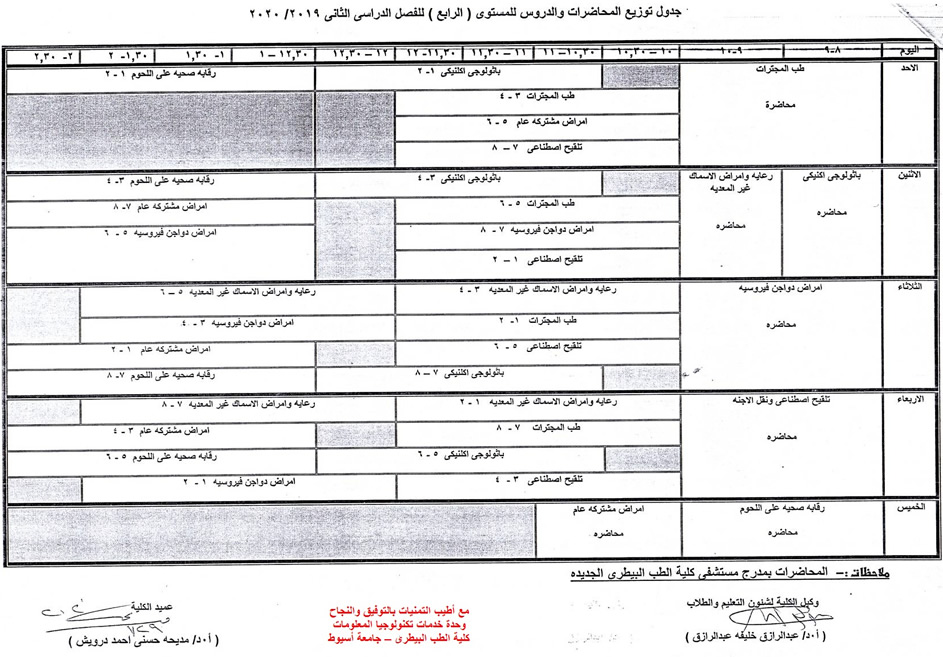 جدول توزيع المحاضرات والدروس للمستوى ( الرابع ) للفصل الدراسى الثانى ٢٠١٩/ ٢٠٢٠
اليوم ٨-٩ ٩-١٠ ١٠-١٠,٣٠ ١٠,٣٠-١١ ١١-١١,٣٠ ١١,٣٠-١٢ ١٢-١٢,٣٠ ١٢,٣٠-١ ١-١,٣٠ ١,٣٠-٢ ٢-٢,٣٠
الاحد
طب المجترات
محاضرة
باثولوجى اكلنيكى ١-٢
رقابه صحيه على اللحوم ١-٢
طب المجترات ٣-٤
امراض مشتركه عام ٥-٦
تلقيح اصطناعى ٧-٨
الاثنين
باثولوجى اكنيكى
محاضره
رعايه وامراض الاسماك
غير المعديه
محاضره
باثولوجى اكلنيكى ٣-٤
رقابه صحيه على اللحوم ٣-٤
طب المجترات ٥-٦
امراض مشتركه عام ٧-٨
امراض دواجن فيروسيه ٧-٨
امراض دواجن فيروسيه ٥-٦
تلقيح اصطناعى ١-٢
الثلاثاء
امراض دواجن فيروسيه
محاضره
رعايه وامراض الاسماك غير المعديه ٣-٤
رعايه وامراض الاسماك غير المعديه ٥-٦
طب المجترات ١-٢
امراض دواجن فيروسيه ٣-٤
تلقيح اصطناعى ٥-٦
امراض مشتركه عام ١-٢
باثولوجى اكلنيكى ٧-٨
رقابه صحيه على اللحوم ٧-٨
الاربعاء
تلقيح اصطناعى ونقل الاجنه
محاضره
رعايه وامراض الاسماك غير المعديه ١-٢
رعايه وامراض الاسماك غير المعديه ٧-٨
طب المجترات ٧-٨
امراض مشتركه عام ٣-٤
باثولوجى اكلنيكى ٥-٦
رقابه صحيه على اللحوم ٥-٦
تلقيح اصطناعى ٣-٤
امراض دواجن فيروسيه ١-٢
الخميس
رقابه صحيه على اللحوم
محاضره
امراض مشتركه عام
محاضره
ملاحظات :– المحاضرات بمدرج مستشفى كلية الطب البيطرى الجديده
وكيل الكلية لشئون التعليم والطلاب
( أ.د/ عبدالرازق خليفه عبدالرازق )
مع أطيب التمنيات بالتوفيق والنجاح
وحدة خدمات تكنولوجيا المعلومات
كلية الطب البيطرى – جامعة أسيوط
عميد الكلية
( أ.د/ مديحه حسنى احمد درويش )